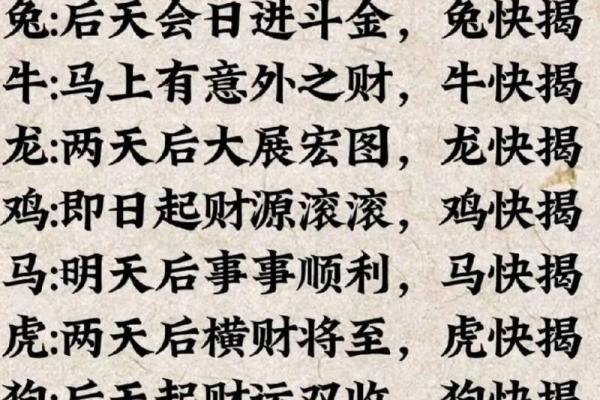 兔:后天会日进斗金，兔快揭
牛:马上有意外之财，牛快揭
龙:两天后大展宏图，龙快揭
鸡:即日起财源滚滚，鸡快揭
马:明天后事事顺利，马快揭
虎:两天后横财将至，虎快揭
狗:后天起财运双收，狗快揭